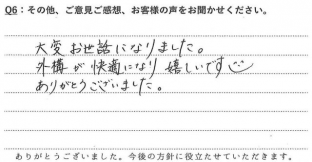 Q6：その他、ご意見ご感想、お客様の声をお聞かせください。
大変お世話になりました。
外構が快適になり嬉しいです
ありがとうございました。
ありがとうございました。今後の方針に役立たせていただきます。